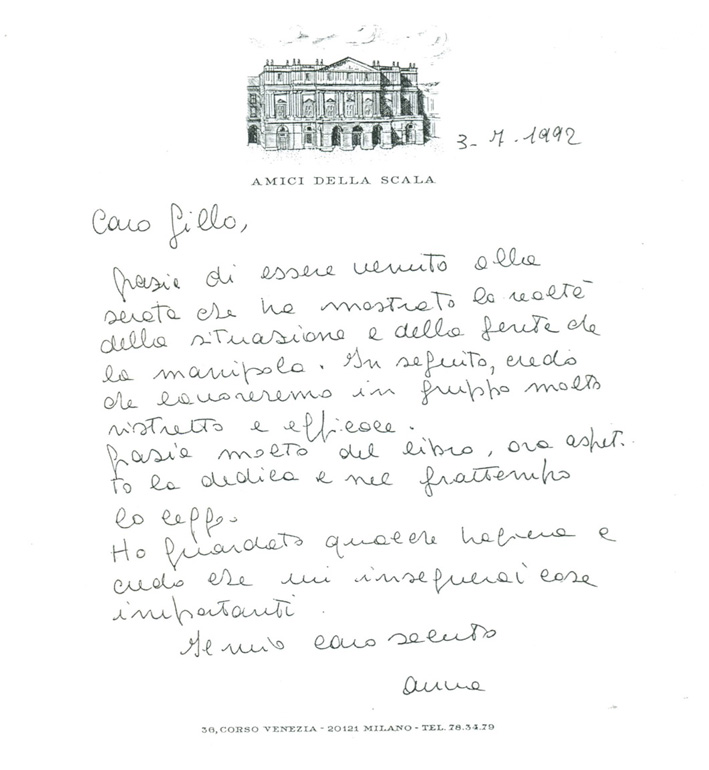 3-7.1992
AMICI DELLA SCALA
Caro Gillo,
grazie di essere venuto alla
serata che ha mostrato la realtà
della situazione e della gente che
la manipola. In seguito, credo
che lavoreremo in gruppo molto
ristretto e efficace.
grazie molto del libro, ora aspet-
to la dedica e nel frattempo
lo leggo.
Ho guardato qualche pagina e
credo che mi insegnerai cose
importanti.
Il mio caro saluto
anna
36, CORSO VENEZIA - 20121 MILANO - TEL. 78.34.79